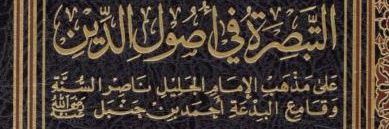 التَّبْصِرَةُ فِي أُصُولِ الدِّينِ
عَلَىٰ مَذْهَبِ الإِمَامِ الجَلِيلِ نَاصِرِ السُّنَّةِ
وَقَامِعِ البِدْعَةِ أَحْمَدَ بْنِ حَنْبَلٍ ﷺ